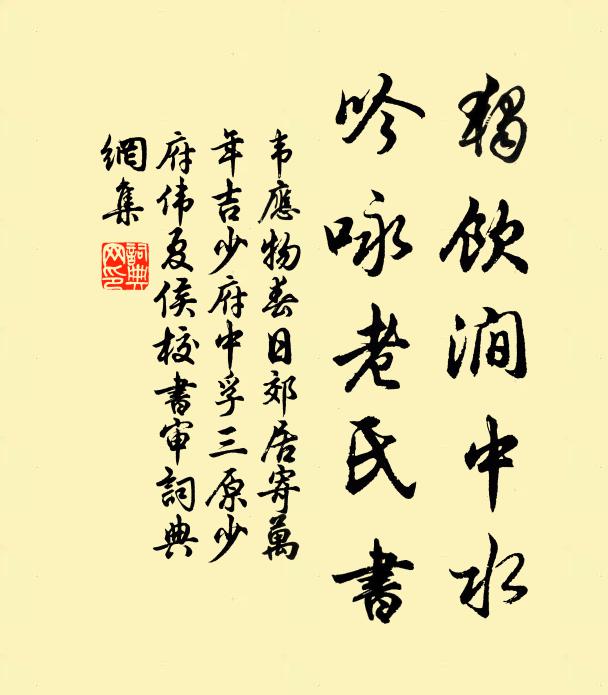 獨飲澗中水
吟咏老氏書
韦應物春日郊居寄萬
年吉少府中孚三原少
府伟夏侯校書审詞典
網集
詞典
网印